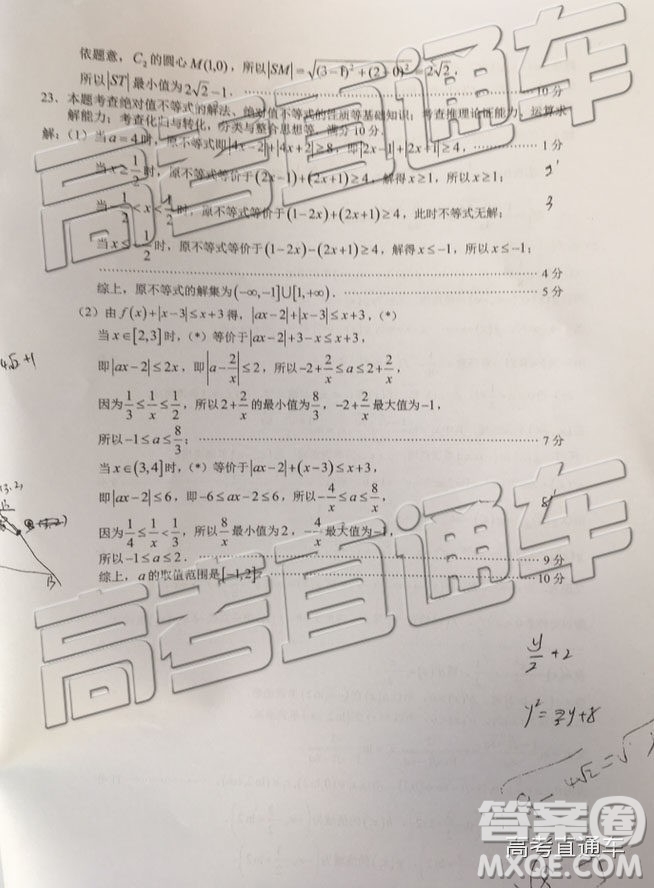 依题意，C₂的圆心M(1,0)，所以|SM|=√((3-1)²+(2-0)²)=2√2，
所以|ST|最小值为2√2-1．……10分
23．本题考查绝对值不等式的解法、绝对值不等式的性质等基础知识；考查推理论证能力、运算求
解能力；考查化归与转化，分类与整合思想等．满分10分．
解：（1）当a=4时，原不等式即|4x-2|+|4x+2|≥8，即|2x-1|+|2x+1|≥4，……1分
当x≥1/2时，原不等式等价于(2x-1)+(2x+1)≥4，解得x≥1，所以x≥1；
2'
当-1/2<x<1/2时，原不等式等价于(1-2x)+(2x+1)≥4，此时不等式无解；
3
当x≤-1/2时，原不等式等价于(1-2x)-(2x+1)≥4，解得x≤-1，所以x≤-1；
……4分
综上，原不等式的解集为(-∞,-1]∪[1,+∞)．……5分
（2）由f(x)+|x-3|≤x+3得，|ax-2|+|x-3|≤x+3，(*)
当x∈[2,3]时，(*)等价于|ax-2|+3-x≤x+3，
4√2+1
即|ax-2|≤2x，即|a-2/x|≤2，所以-2+2/x≤a≤2+2/x，
因为1/3≤1/x≤1/2，所以2+2/x的最小值为8/3，-2+2/x最大值为-1，
所以-1≤a≤8/3；……7分
当x∈(3,4]时，(*)等价于|ax-2|+(x-3)≤x+3，
即|ax-2|≤6，即-6≤ax-2≤6，所以-4/x≤a≤8/x，
因为1/4≤1/x<1/3，所以8/x最小值为2，-4/x最大值为-1，
所以-1≤a≤2．……9分
综上，a的取值范围是[-1,2]．……10分
B
y/2+2
y²=
高考直通车
高考直通车
答案圈
高考直通车
MXQE.COM